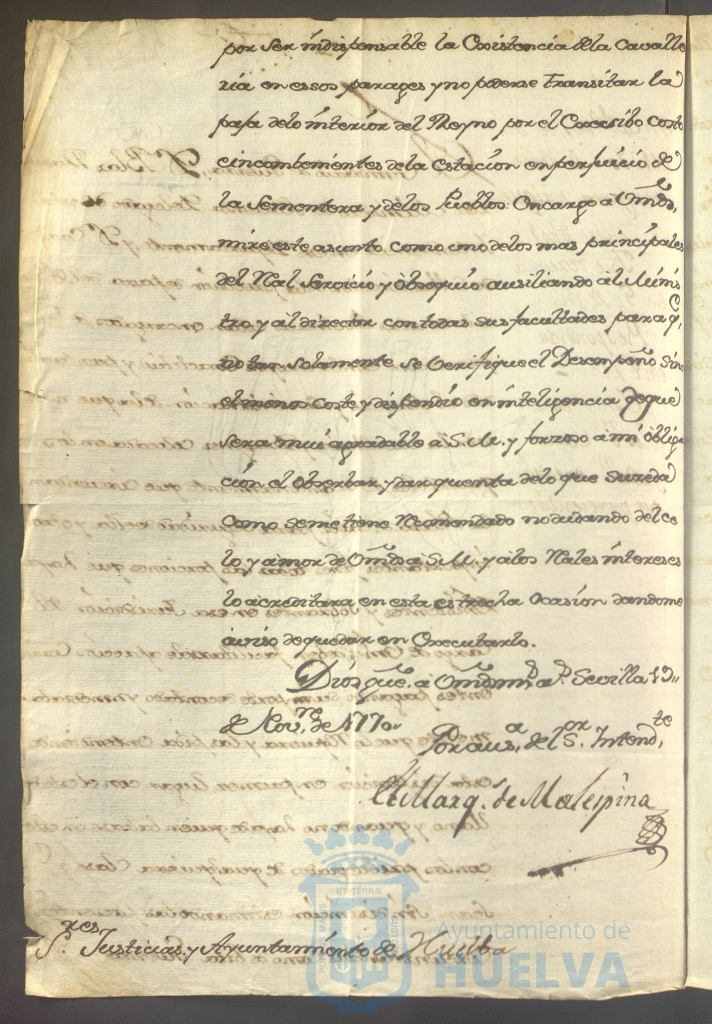 por ser indispensable la Existencia de la Cavalle
ria en essos parages y no poderse transitar la
paja de lo interior del Reyno por el Excesibo costo
e incombenientes de la Estacion en perjuicio de
la Sementera y de los Pueblos: Encargo à Vmds.
mire este asunto como uno de los mas principales
del Rl Servicio y Obsequio ausiliando àl Minis
tro, y àl director con todas sus facultades para q.e
no tan solamente se Verifique el Desempeño sino
el menos coste y dispendio en inteligencia de que
sera mui agradable a S.M. y forzoso à mi obliga
cion el Obserbar, y dar quenta de lo que suzeda
como se me tiene Recomendado no dudando del ce
lo y amor de Vmds à S.M. y àlos Rales intereses
lo acreditara en esta estrecha Ocasion dandome
aviso de quedar en Executarlo.
Dios gue. a Vmds m.s a.s Sevilla 19
de Nov.re de 1770
Por aus.a del S.or Intend.te
El Marq.s de Malespina
S.res Justicias y Ayuntamiento de Huelba
Ayuntamiento de
HUELVA